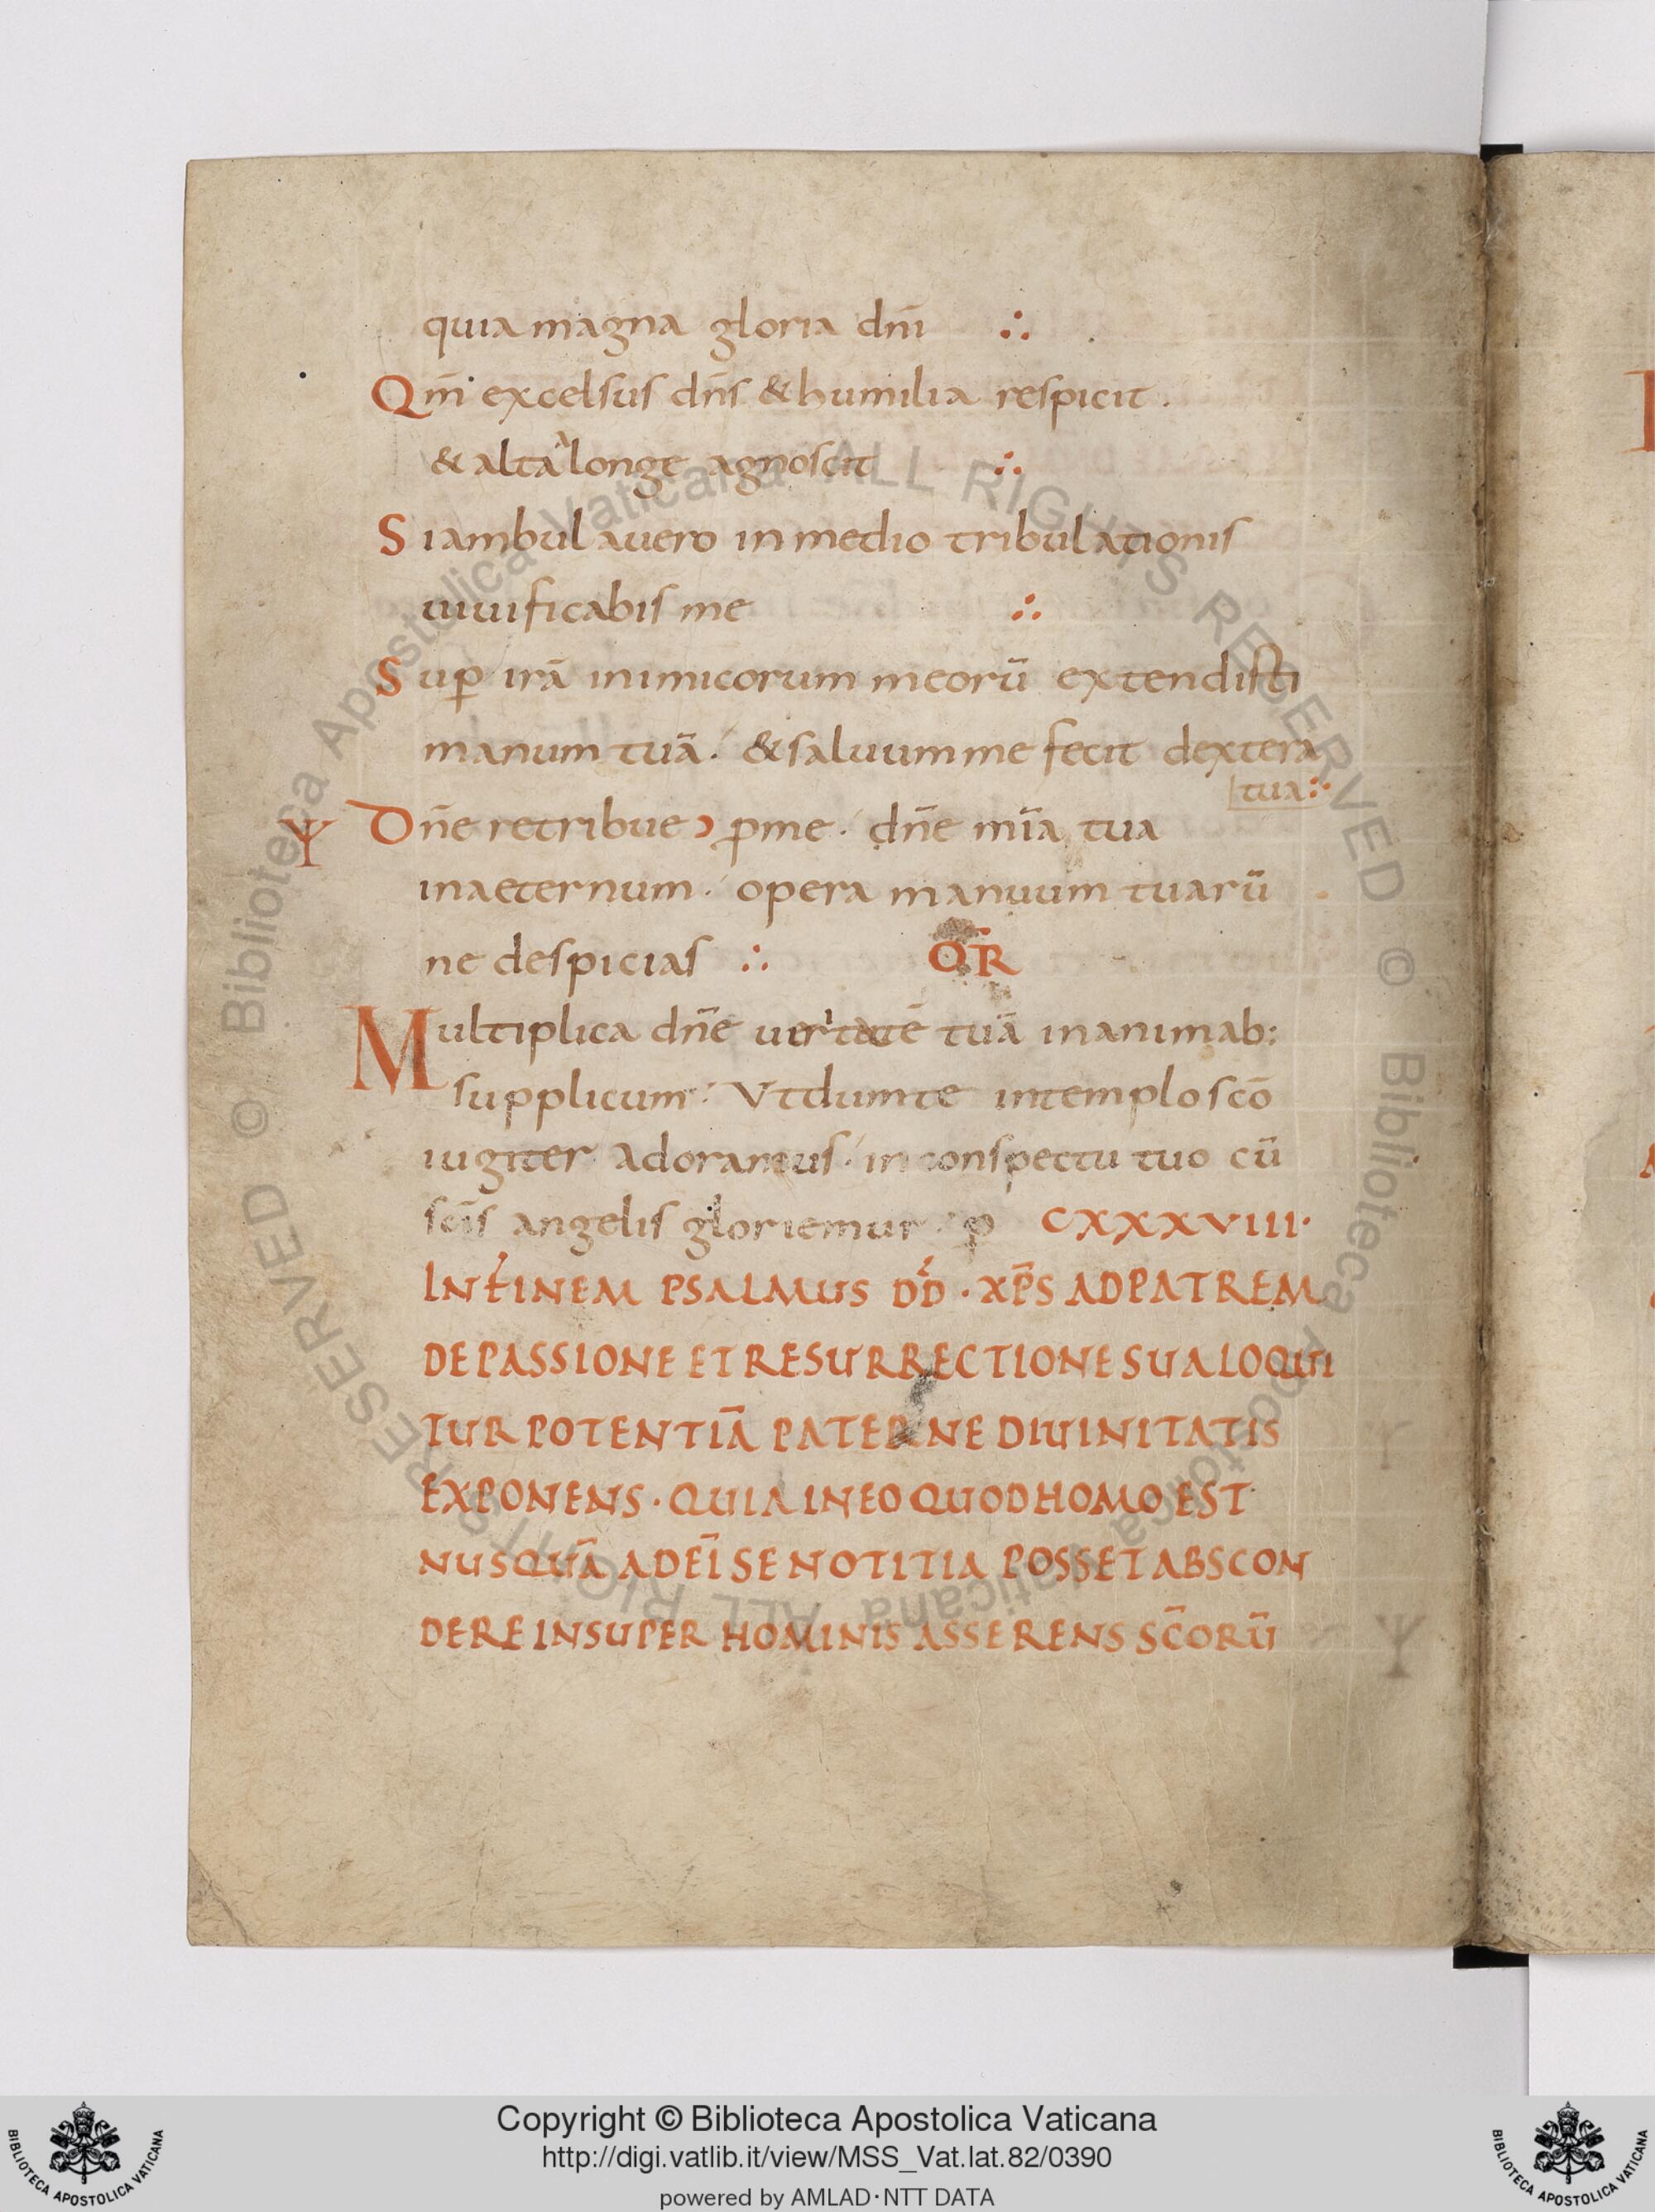 quia magna gloria dn̄i ∴
Qm̄ excelsus dn̄s & humilia respicit.
& alta a longe agnoscit ∴
Si ambulavero in medio tribulationis
uiuificabis me ∴
Sup irā inimicorum meorū extendisti
manum tuā. & saluum me fecit dextera
tua:·
Ψ Dn̄e retribue pme. dn̄e mīa tua
in aeternum. opera manuum tuarū
ne despicias ∴ OR̄
Multiplica dn̄e tuā in animab:
supplicum: Vt dum te in templo scō
iugiter adoramus. in conspectu tuo cū
scīs angelis gloriemur. p CXXXVIII.
IN FINEM PSALMUS DD · XP̄S AD PATREM
DE PASSIONE ET RESURRECTIONE SUA LOQUI
TUR POTENTIĀ PATERNE DIUINITATIS
EXPONENS · QUIA IN EO QUOD HOMO EST
NUSQUĀ AD EĪ SE NOTITIA POSSET ABSCON
DERE INSUPER HOMINIS ASSERENS SC̄ORŪ
Biblioteca Apostolica Vaticana ALL RIGHTS RESERVED ©
Biblioteca Apostolica Vaticana ALL RIGHTS RESERVED ©
Copyright © Biblioteca Apostolica Vaticana
http://digi.vatlib.it/view/MSS_Vat.lat.82/0390
powered by AMLAD·NTT DATA
BIBLIOTECA APOSTOLICA VATICANA
BIBLIOTECA APOSTOLICA VATICANA